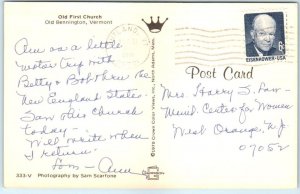 Old First Church
Old Bennington, Vermont
Am on a little
motor trip with
Betty & Bob thru the
New England States.
Saw this church
today -
Will write when
I return.
Love - Ann
333-V Photography by Sam Scarfone
6c
EISENHOWER·USA
Post Card
Mrs Harry S.
Menil. Center for Women
West Orange, N J
07052